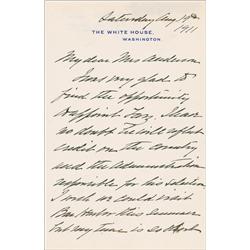 Saturday Aug 19th
1911
THE WHITE HOUSE,
WASHINGTON.
My dear Mrs Anderson
I was very glad to
find the opportunity
to appoint Larz. I have
no doubt he will reflect
credit on the country
and the Administration
responsible for his selection
I wish we could visit
Bar Harbor this summer
but my time is so short